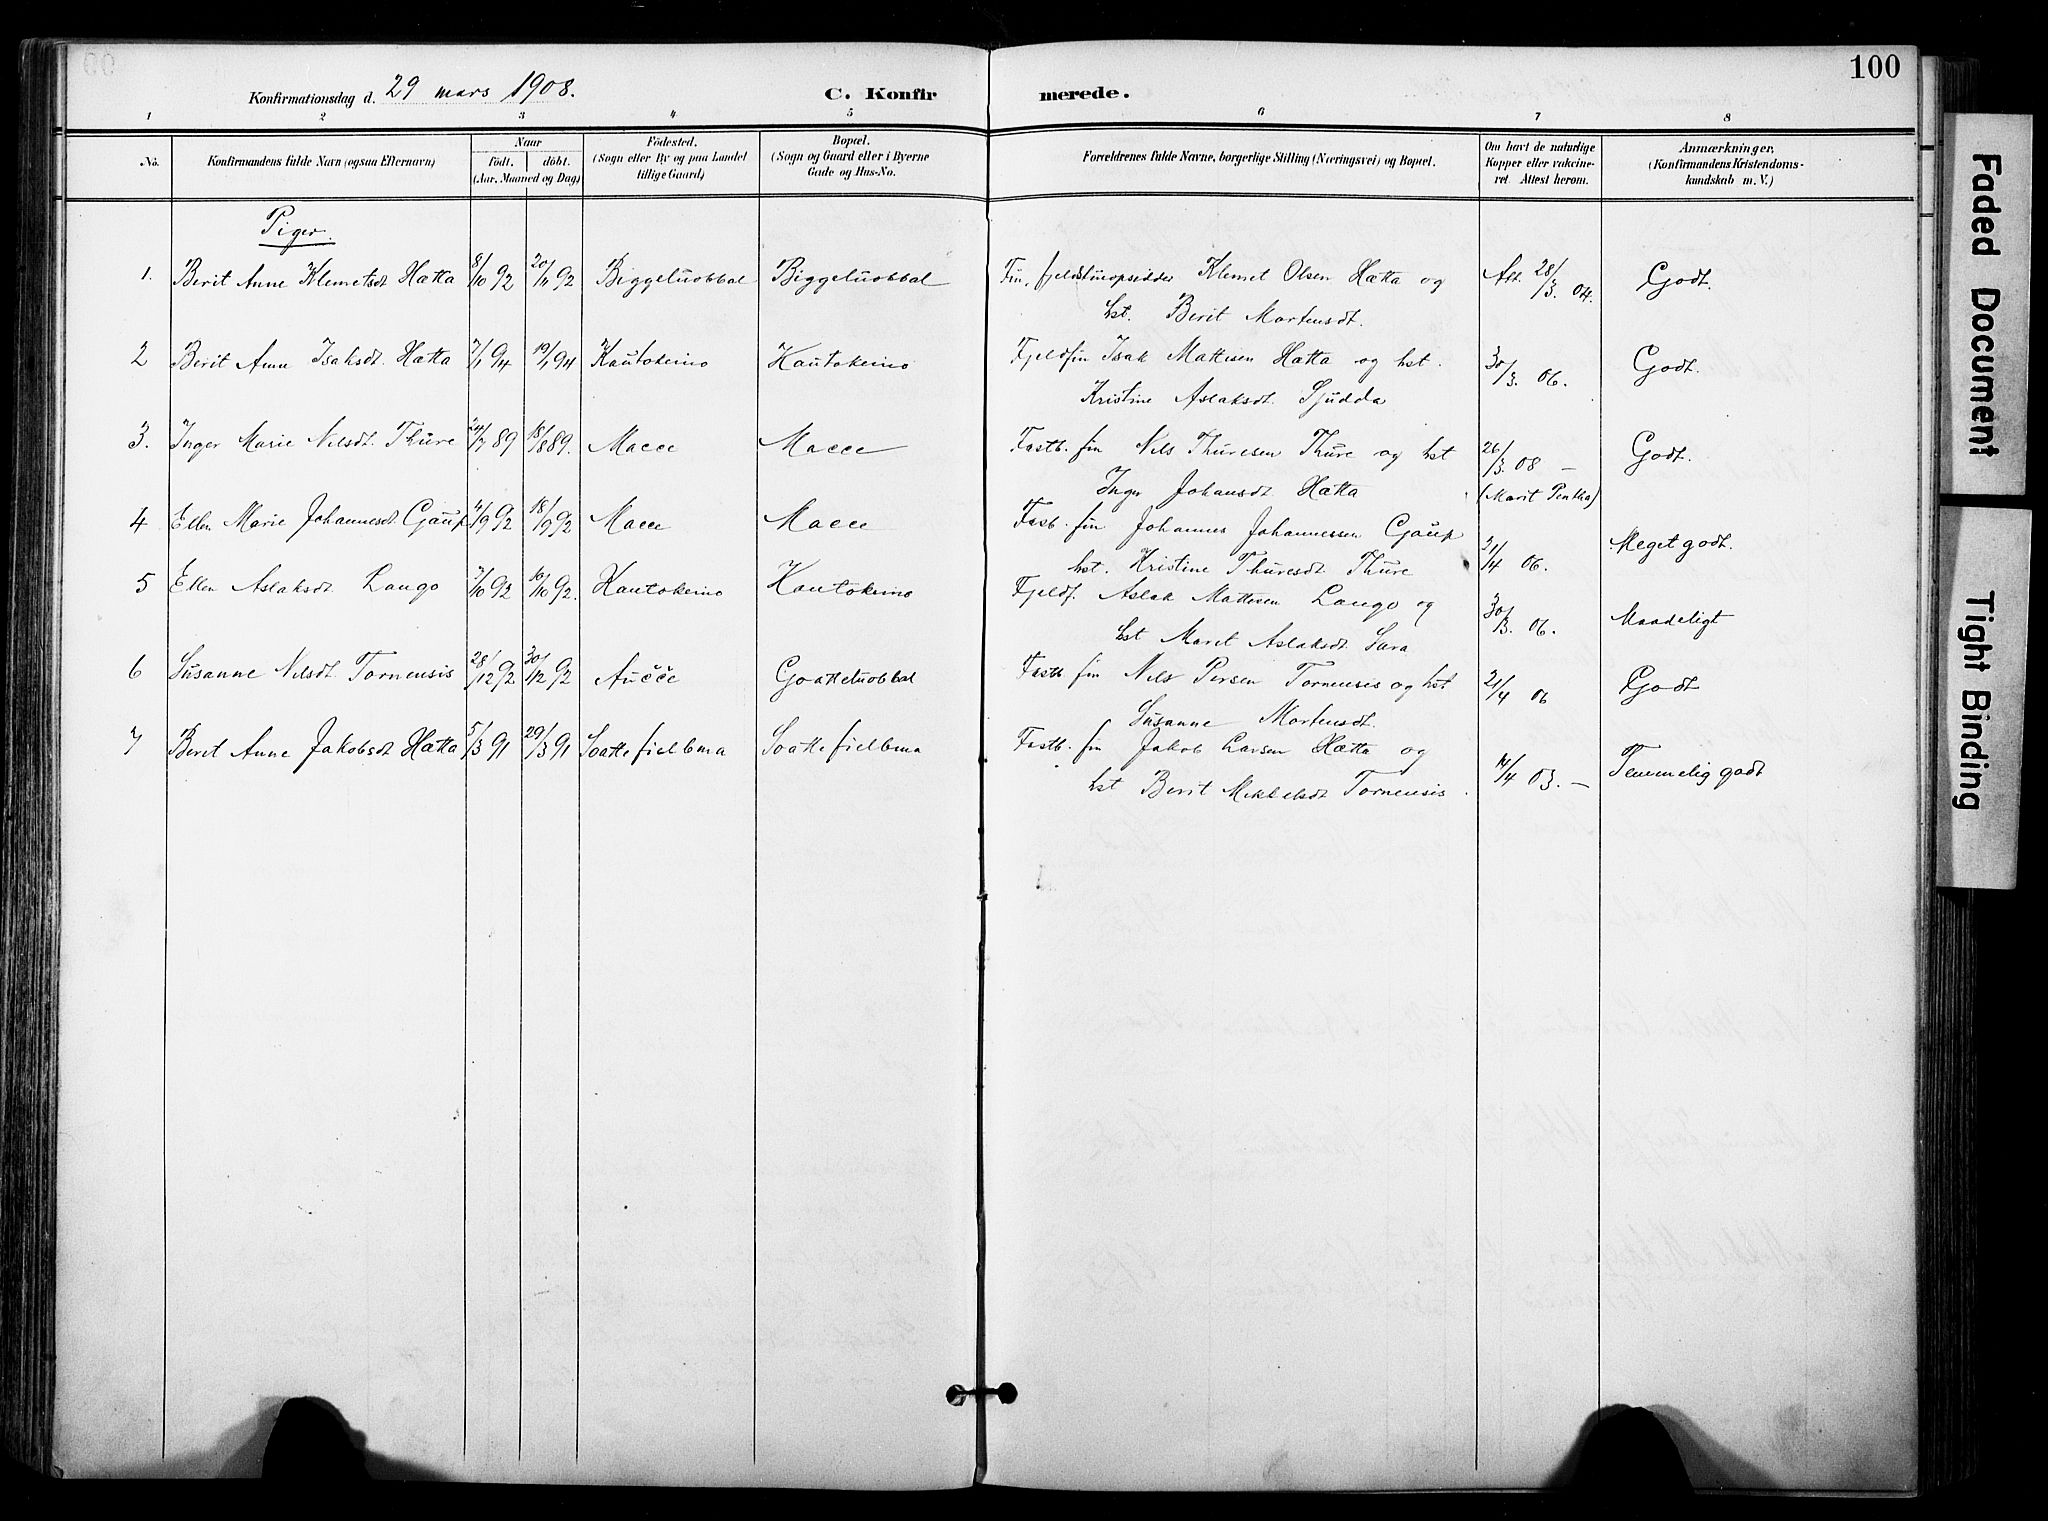 100
Konfirmationsdag d. 29 mars 1908.
C. Konfirmerede.
1 2 3 4 5 6 7 8
No. Konfirmandens fulde Navn (ogsaa Efternavn)
Naar født. døbt. (Aar, Maaned og Dag)
Fødested. (Sogn eller By og paa Landet tillige Gaard)
Bopæl. (Sogn og Gaard eller i Byerne Gade og Hus-No.
Forældrenes fulde Navne, borgerlige Stilling (Næringsvei) og Bopæl.
Om havt de naturlige Kopper eller vaccineret. Attest herom.
Anmærkninger, (Konfirmandens Kristendomskundskab m. V.)
Piger.
1. Berit Anne Klemetsdt Hætta 8/10 92 20/11 92 Biggeluobbal Biggeluobbal Fin, fjeldstueopsidder Klemet Olsen Hætta og Att. 28/3. 04. Godt.
hst. Berit Mortensdt.
2 Berit Anne Isaksdt. Hætta 7/1 94 19/1 94 Kautokeino Kautokeino Fjeldfin Isak Mattisen Hætta og hst. 30/3. 06. Godt.
Kristine Aslaksdt. Sjudda
3. Inger Marie Nilsdt. Thure 24/7 89 18/8 89. Macce Macce Fastb. fin Nils Thuresen Thure og hst 26/3 08 — Godt.
Inger Johansdt. Hætta (Marit Pentha)
4 Ellen Marie Johannesdt Gaup 4/9 92 18/9 92 Macce Macce Fastb. fin Johannes Johannessen Gaup 21/4 06. Meget godt.
hst. Kristine Thuresdt. Thure
5 Ellen Aslaksdt. Lango 3/10 92 16/10 92. Kautokeino Kautokeino Fjeldf. Aslak Mattesen Lango og 30/3. 06. Maadeligt
hst Maret Aslaksdt. Sara
6 Susanne Nilsdt. Tornensis 28/12 92 30/12 92 Aučče Goattetuobbal Fastb. fin Nils Persen Tornensis og hst 21/4 06 Godt
Susanne Mortensdt.
7 Berit Anne Jakobsdt Hætta 5/3 91 29/3 91 Soattefielbma Soattefielbma Fastb. fin Jakob Larsen Hætta og 14/4 03. — Temmelig godt
hst Berit Mikkelsdt Tornensis.
Faded Document
Tight Binding